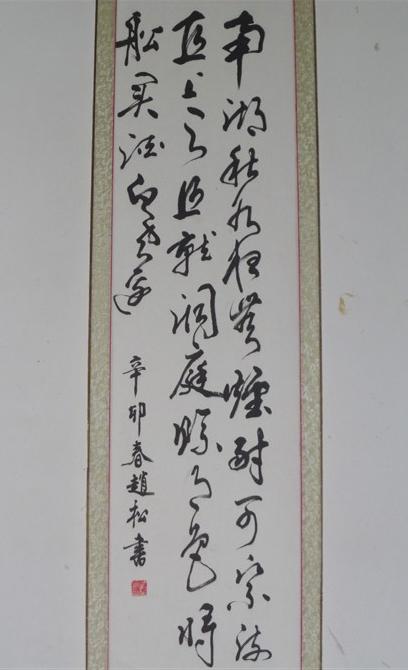 南湖秋水夜無煙耐可乘流
直上天且就洞庭賒月色將
船買酒白雲邊
辛卯春趙松書